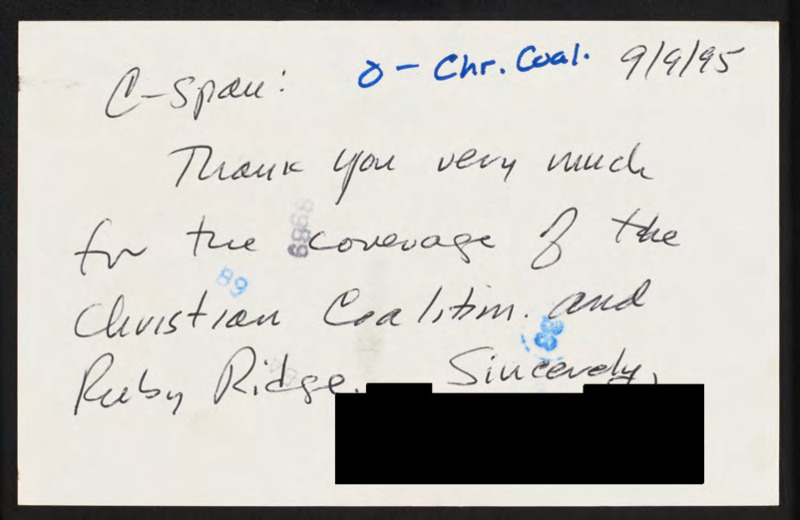 C-Span: O - Chr. Coal. 9/9/95
Thank you very much
for the coverage of the
Christian Coalition. and
Ruby Ridge. Sincerely,
8989
89